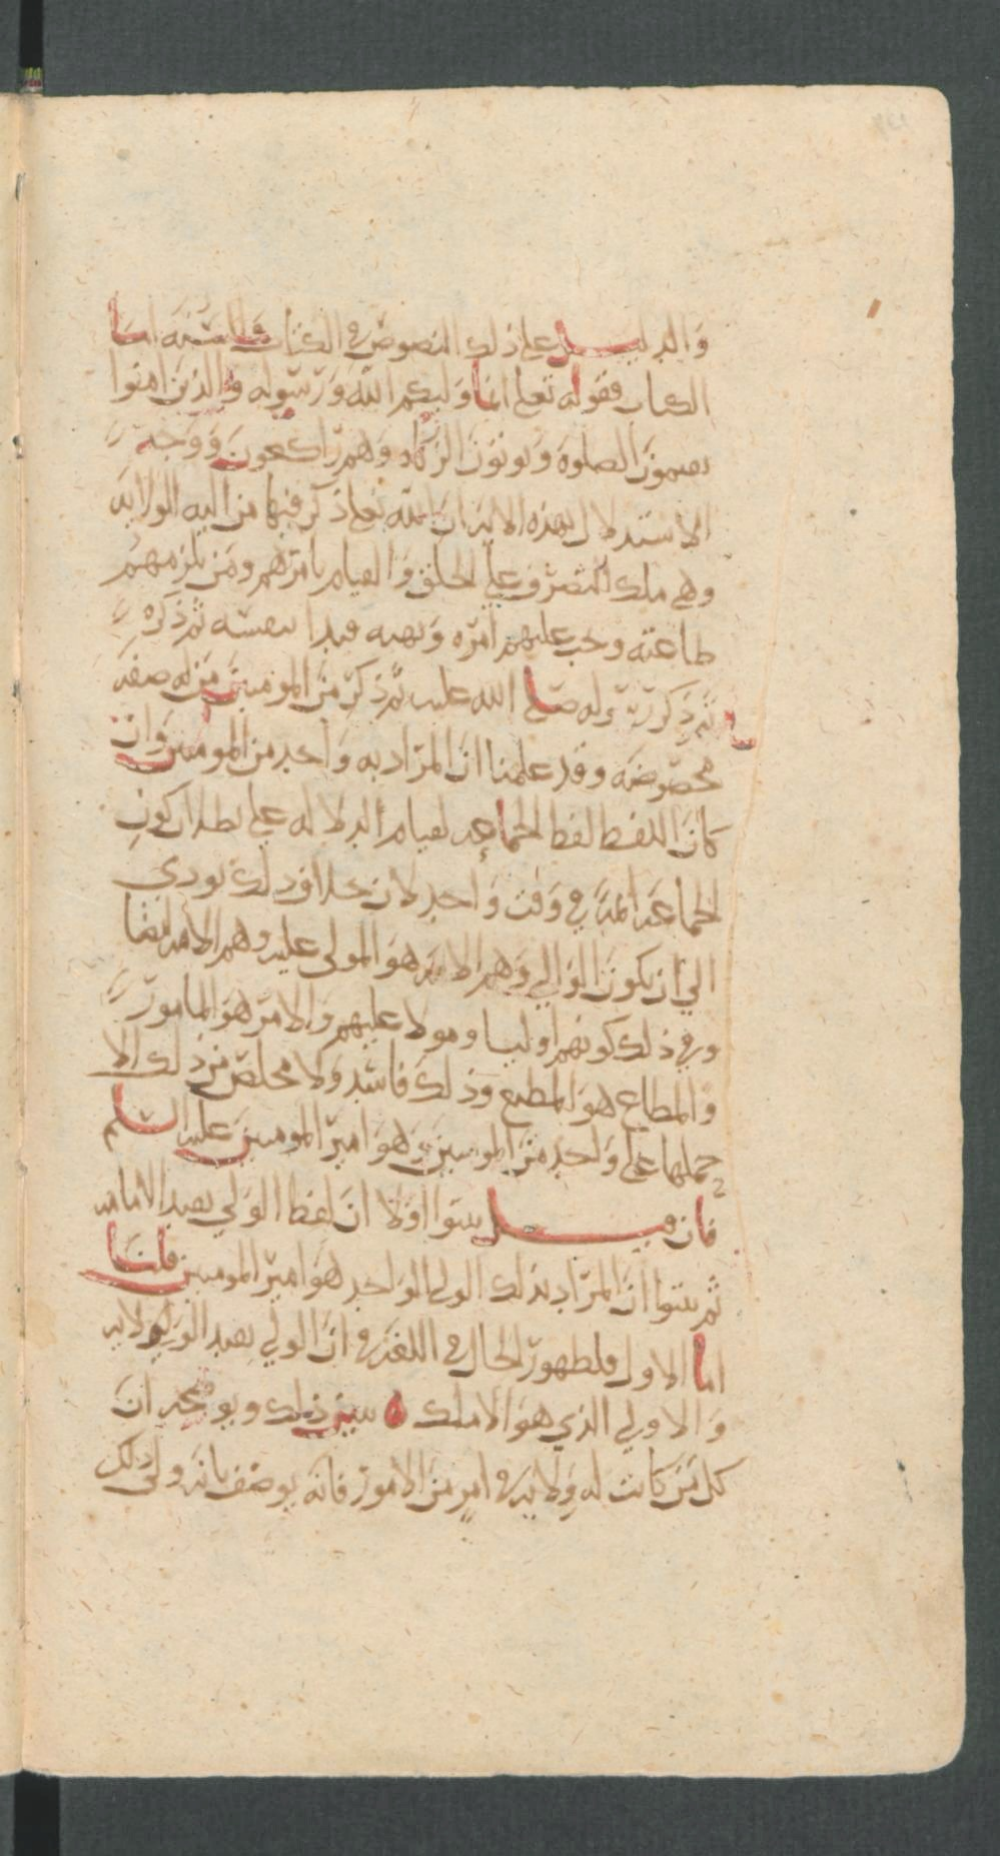 والدليل على ذلك النصوص في الكتاب والسنه اما
الكتاب فقوله تعلى انما وليكم الله ورسوله والذين امنوا
يقيمون الصلوة ويوتون الزكاه وهم راكعون ووجه
الاستدلال بهذه الايه ان الله تعلى ذكر فيها من اليه الولايه
وهي ملك التصرف على الخلق والقيام بامرهم ومن يلزمهم
طاعته وجب عليهم امره ونهيه فبدا بنفسه ثم ذكره
ثم ذكر رسوله صلى الله عليه ثم ذكر من المومنين من له صفه
مخصوصه وقد علمنا ان المراد به واحد من المومنين وان
كان اللفظ لفظ الجماعه لقيام الدلاله على بطلان كون
الجماعه ايمه في وقت واحد لان خلاف ذلك يودي
الى ان يكون الوالي وهم الايمه هو المولى عليه وهم الايمه ايضا
وفي ذلك كونهم اوليا ومولا عليهم والامر هو المامور
والمطاع هو المطيع وذلك فاسد ولا مخلص من ذلك الا
حملها على واحد من المومنين وهو امير المومنين عليه السلم
فان قيل بينوا اولا ان لفظ الولي يفيد الامامه
ثم بينوا ان المراد بذلك الولي الواحد هو امير المومنين قلنا
اما الاول فلظهور الحال في اللغه في ان الولي يفيد الولايه
والاولى الذي هو الاملك يبين ذلك ويوضحه ان
كل من كانت له ولايه في امر من الامور فانه يوصف بانه ولي ذلك